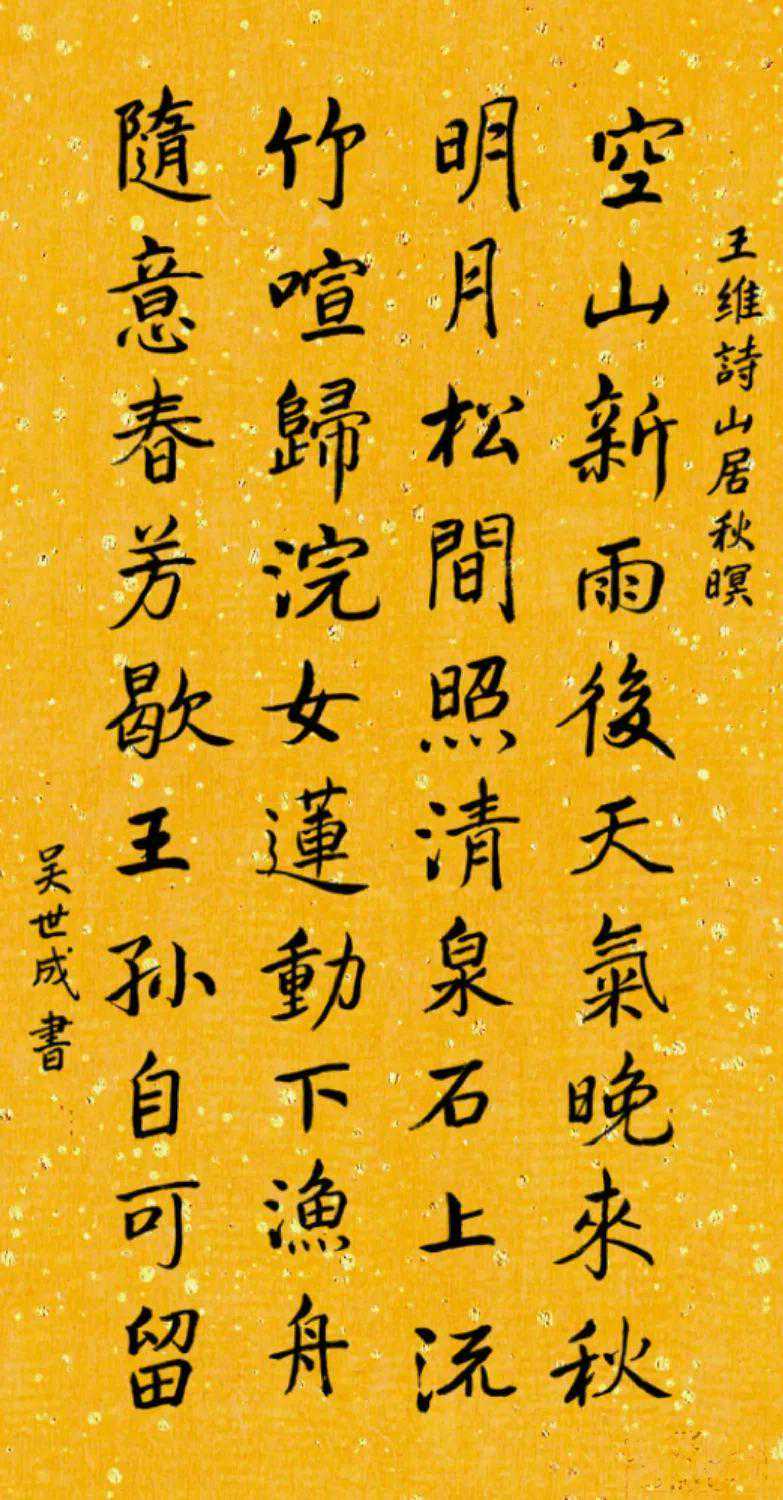 王維詩山居秋暝
空山新雨後天氣晚來秋
明月松間照清泉石上流
竹喧歸浣女蓮動下漁舟
隨意春芳歇王孙自可留
吴世成書